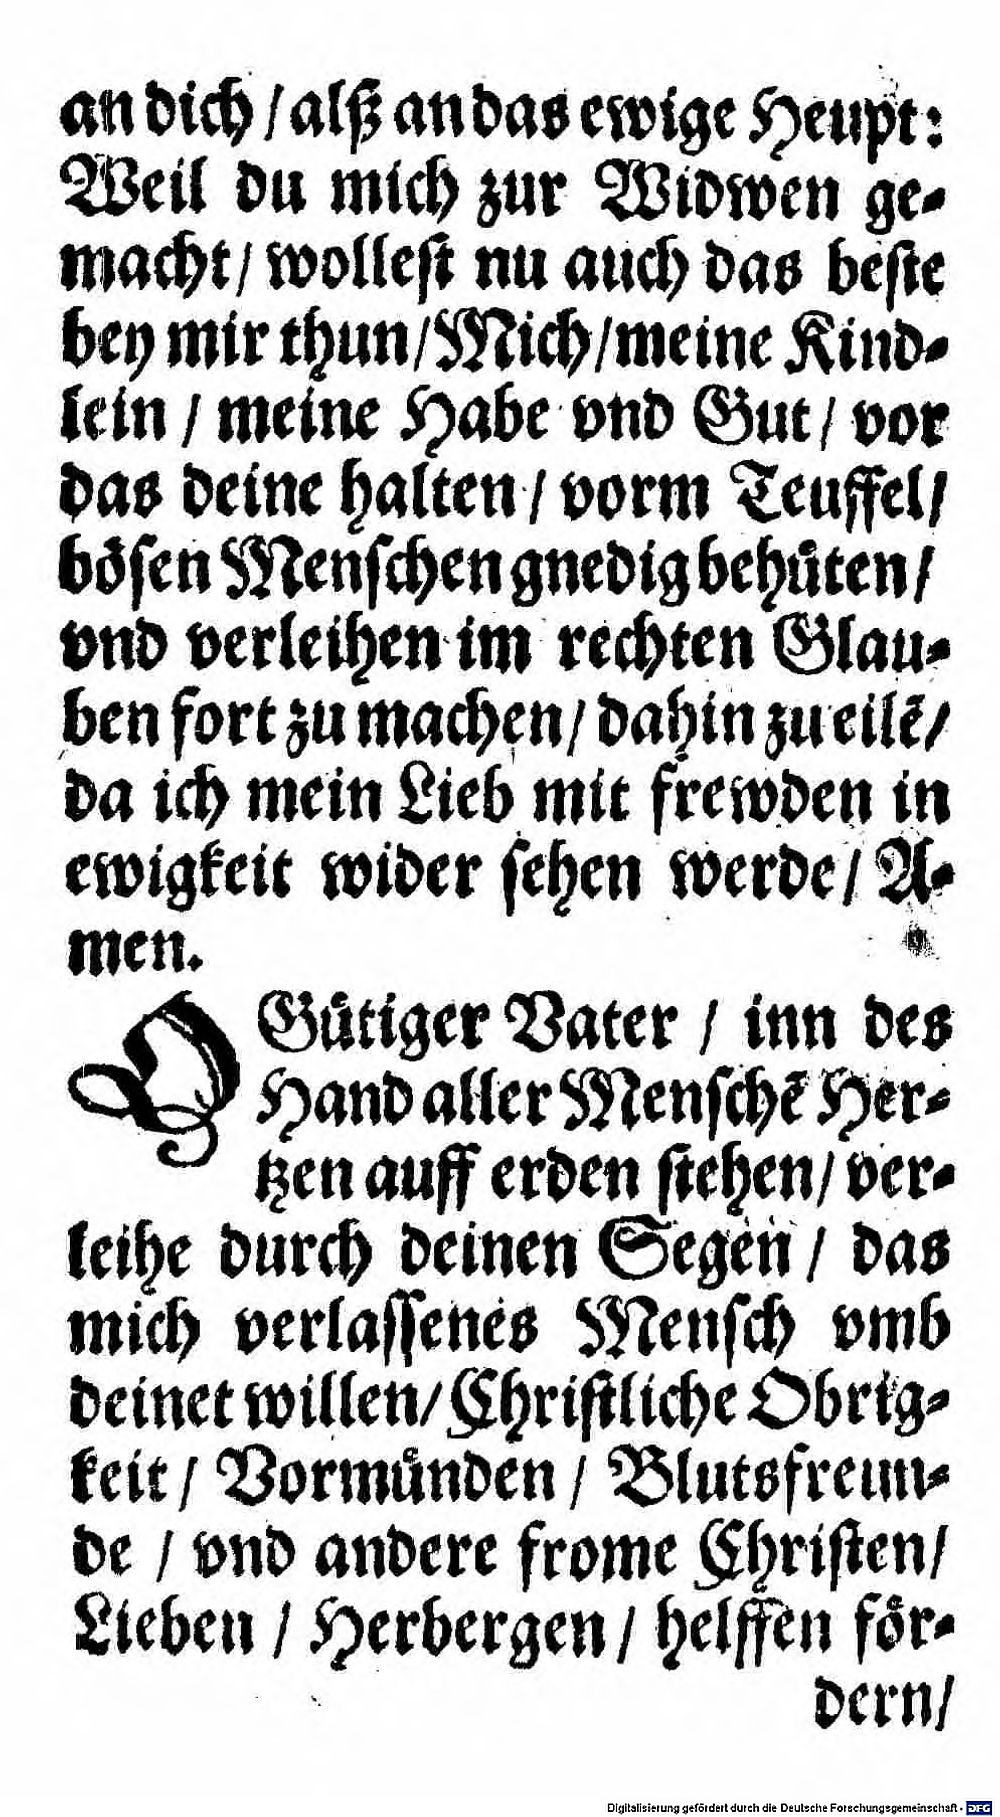 an dich / alß an das ewige Heupt:
Weil du mich zur Widwen ge-
macht / wollest nu auch das beste
bey mir thun / Mich / meine Kind-
lein / meine Habe vnd Gut / vor
das deine halten / vorm Teuffel /
boͤsen Menschen gnedig behuͤten /
vnd verleihen im rechten Glau-
ben fort zu machen / dahin zu eilẽ /
da ich mein Lieb mit frewden in
ewigkeit wider sehen werde / A-
men.
O Guͤtiger Vater / inn des
Hand aller Menschẽ Her-
tzen auff erden stehen / ver-
leihe durch deinen Segen / das
mich verlassenes Mensch vmb
deinet willen / Christliche Obrig-
keit / Vormuͤnden / Blutsfreun-
de / vnd andere frome Christen /
Lieben / Herbergen / helffen foͤr-
dern /
Digitalisierung gefördert durch die Deutsche Forschungsgemeinschaft - DFG